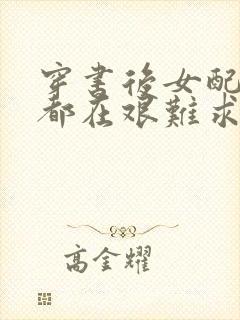 穿書後女配
都在艱難求
高金耀